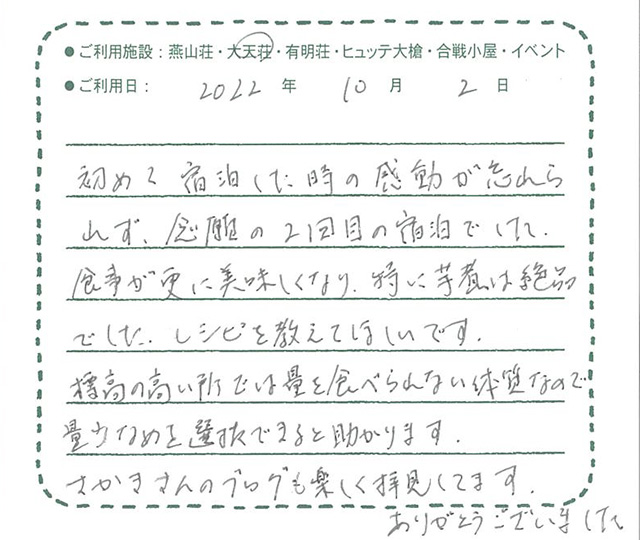 ●ご利用施設：燕山荘・大天荘・有明荘・ヒュッテ大槍・合戦小屋・イベント
●ご利用日： 2022 年 10 月 2 日
初めて宿泊した時の感動が忘れら
れず、念願の2回目の宿泊でした。
食事が更に美味しくなり、特に芋煮は絶品
でした。レシピを教えてほしいです。
標高の高い所では量を食べられない体質なので
量少なめを選択できると助かります。
さかきさんのブログも楽しく拝見してます。
ありがとうございました